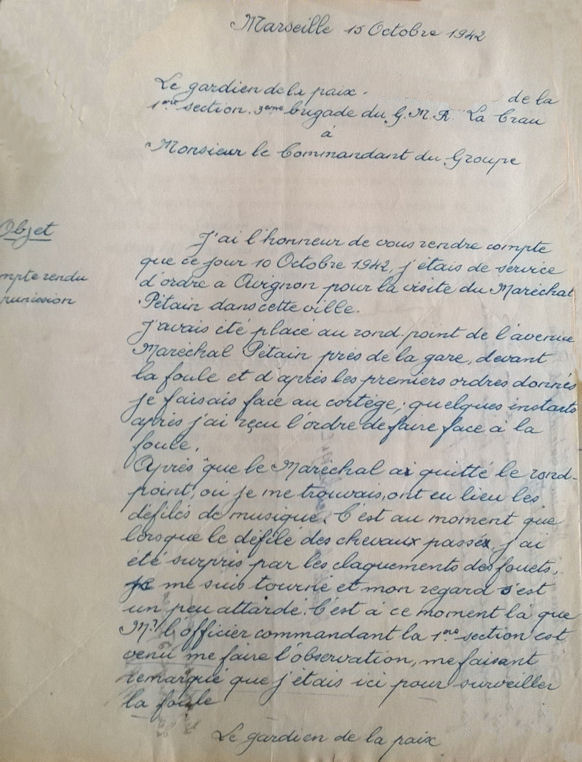 Marseille 15 Octobre 1942
Le gardien de la paix. de la
1ère section. 3eme brigade du G.M.R La Crau
à
Monsieur le Commandant du Groupe
Objet
mpte rendu
punission
J'ai l'honneur de vous rendre compte
que ce jour 10 Octobre 1942, j'étais de service
d'ordre a Avignon pour la visite du Maréchal
Pétain dans cette ville.
J'avais été placé au rond-point de l'avenue
Maréchal Pétain près de la gare, devant
la foule et d'après les premiers ordres donnés
je faisais face au cortège; quelques instants
après j'ai reçu l'ordre de faire face à la
foule.
Après que le Maréchal ai quitté le rond-
point, où je me trouvais, ont eu lieu les
défilés de musique. C'est au moment que
lorsque le défilé des chevaux passés j'ai
été surpris par les claquements des fouets;
je me suis tourné et mon regard s'est
un peu attardé. C'est à ce moment là que
Mr l'officier commandant la 1ère section est
venu me faire l'observation, me faisant
remarqué que j'étais ici pour surveiller
la foule
Le gardien de la paix